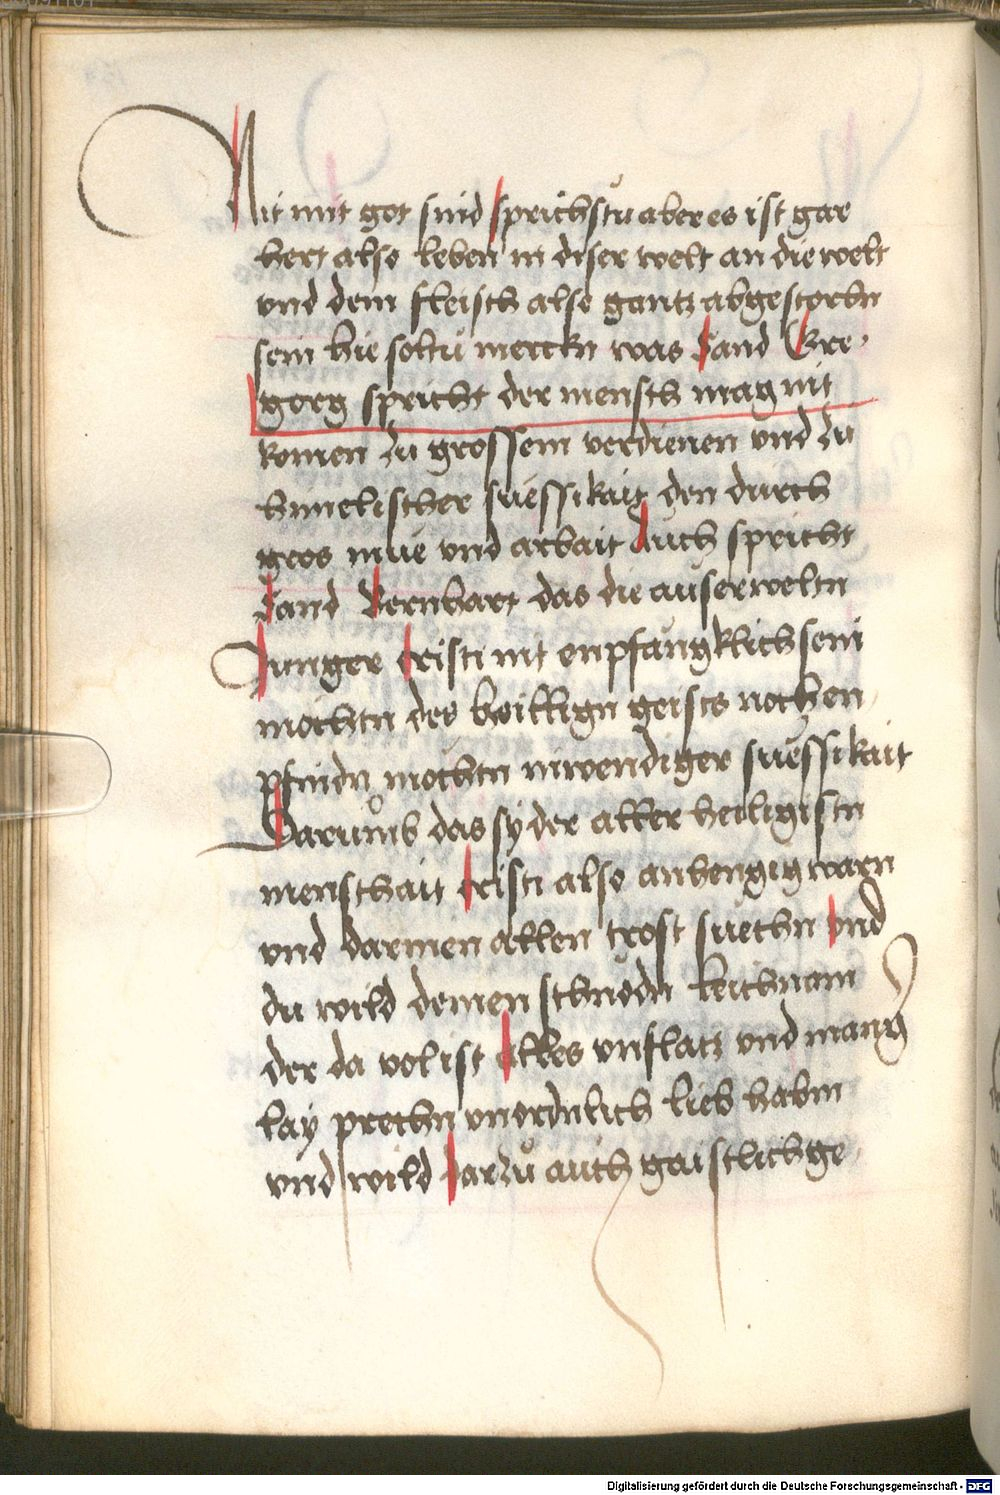 Nit mit got sind Sprichstu aber es ist gar
hert also leben in diser welt an die welt
vnd dem fleisch also gantz abgestorbn
sein hie soltu merckn was Sand Gre-
gorg spricht der mensch mag nit
komen zu grossem verdienen vnd zu
himelischer suessikait den durch
gros müe vnd arbait Auch spricht
Sand Bernhart das die auserweltn
Junger Cristi nit enpfangklich sein
mochtn des heillign geists noch en-
pfindn mochtn inwendiger suessikait
Darumb das sy der aller heiligistn
menschait Cristi also anhengig warn
vnd dar Inen allen trost suechn Vnd
du wild deinen schnödn leichnam
der da vol ist alles vnflatz vnd mang
lay prechn vnordnlich lieb habm
vnd wild Darzu auch gaistlich ge-
Digitalisierung gefördert durch die Deutsche Forschungsgemeinschaft - DFG